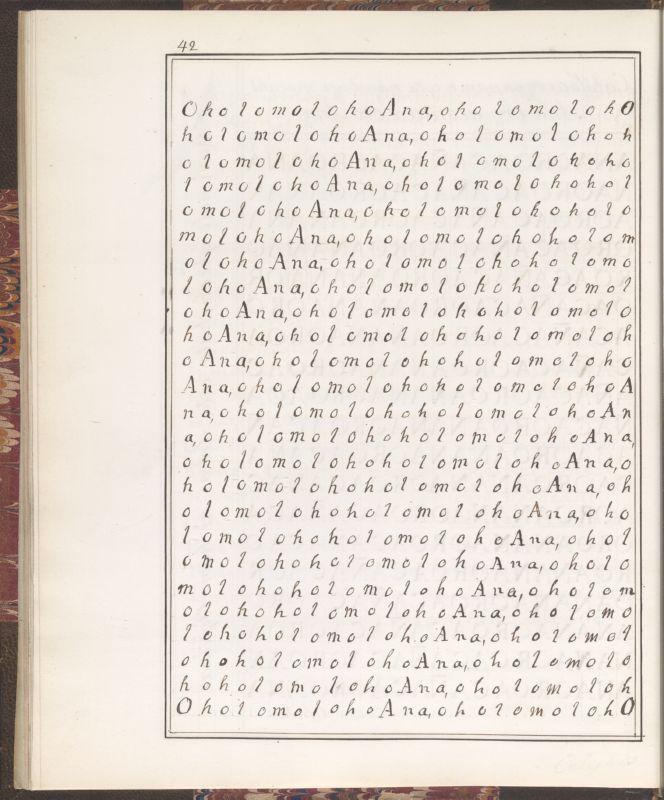 42
OholomolohoAna,oholomolohO
holomolohoAna,oholomolohoh
olomolohoAna,oholomolohoho
lomolohoAna,oholomolohohol
omolohoAna,oholomolohoholo
molohoAna,oholomolohoholom
olohoAna,oholomolohoholomo
lohoAna,oholomolohoholomol
ohoAna,oholomolohoholomolo
hoAna,oholomolohoholomoloh
oAna,oholomolohoholomoloho
Ana,oholomolohoholomolohoA
na,oholomolohoholomolohoAn
a,oholomolohoholomolohoAna,
oholomolohoholomolohoAna,o
holomolohoholomolohoAna,oh
olomolohoholomolohoAna,oho
lomolohoholomolohoAna,ohol
omolohoholomolohoAna,oholo
molohoholomolohoAna,oholom
olohoholomolohoAna,oholomo
lohoholomolohoAna,oholomol
ohoholomolohoAna,oholomolo
hoholomolohoAna,oholomoloh
OholomolohoAna,oholomolohO